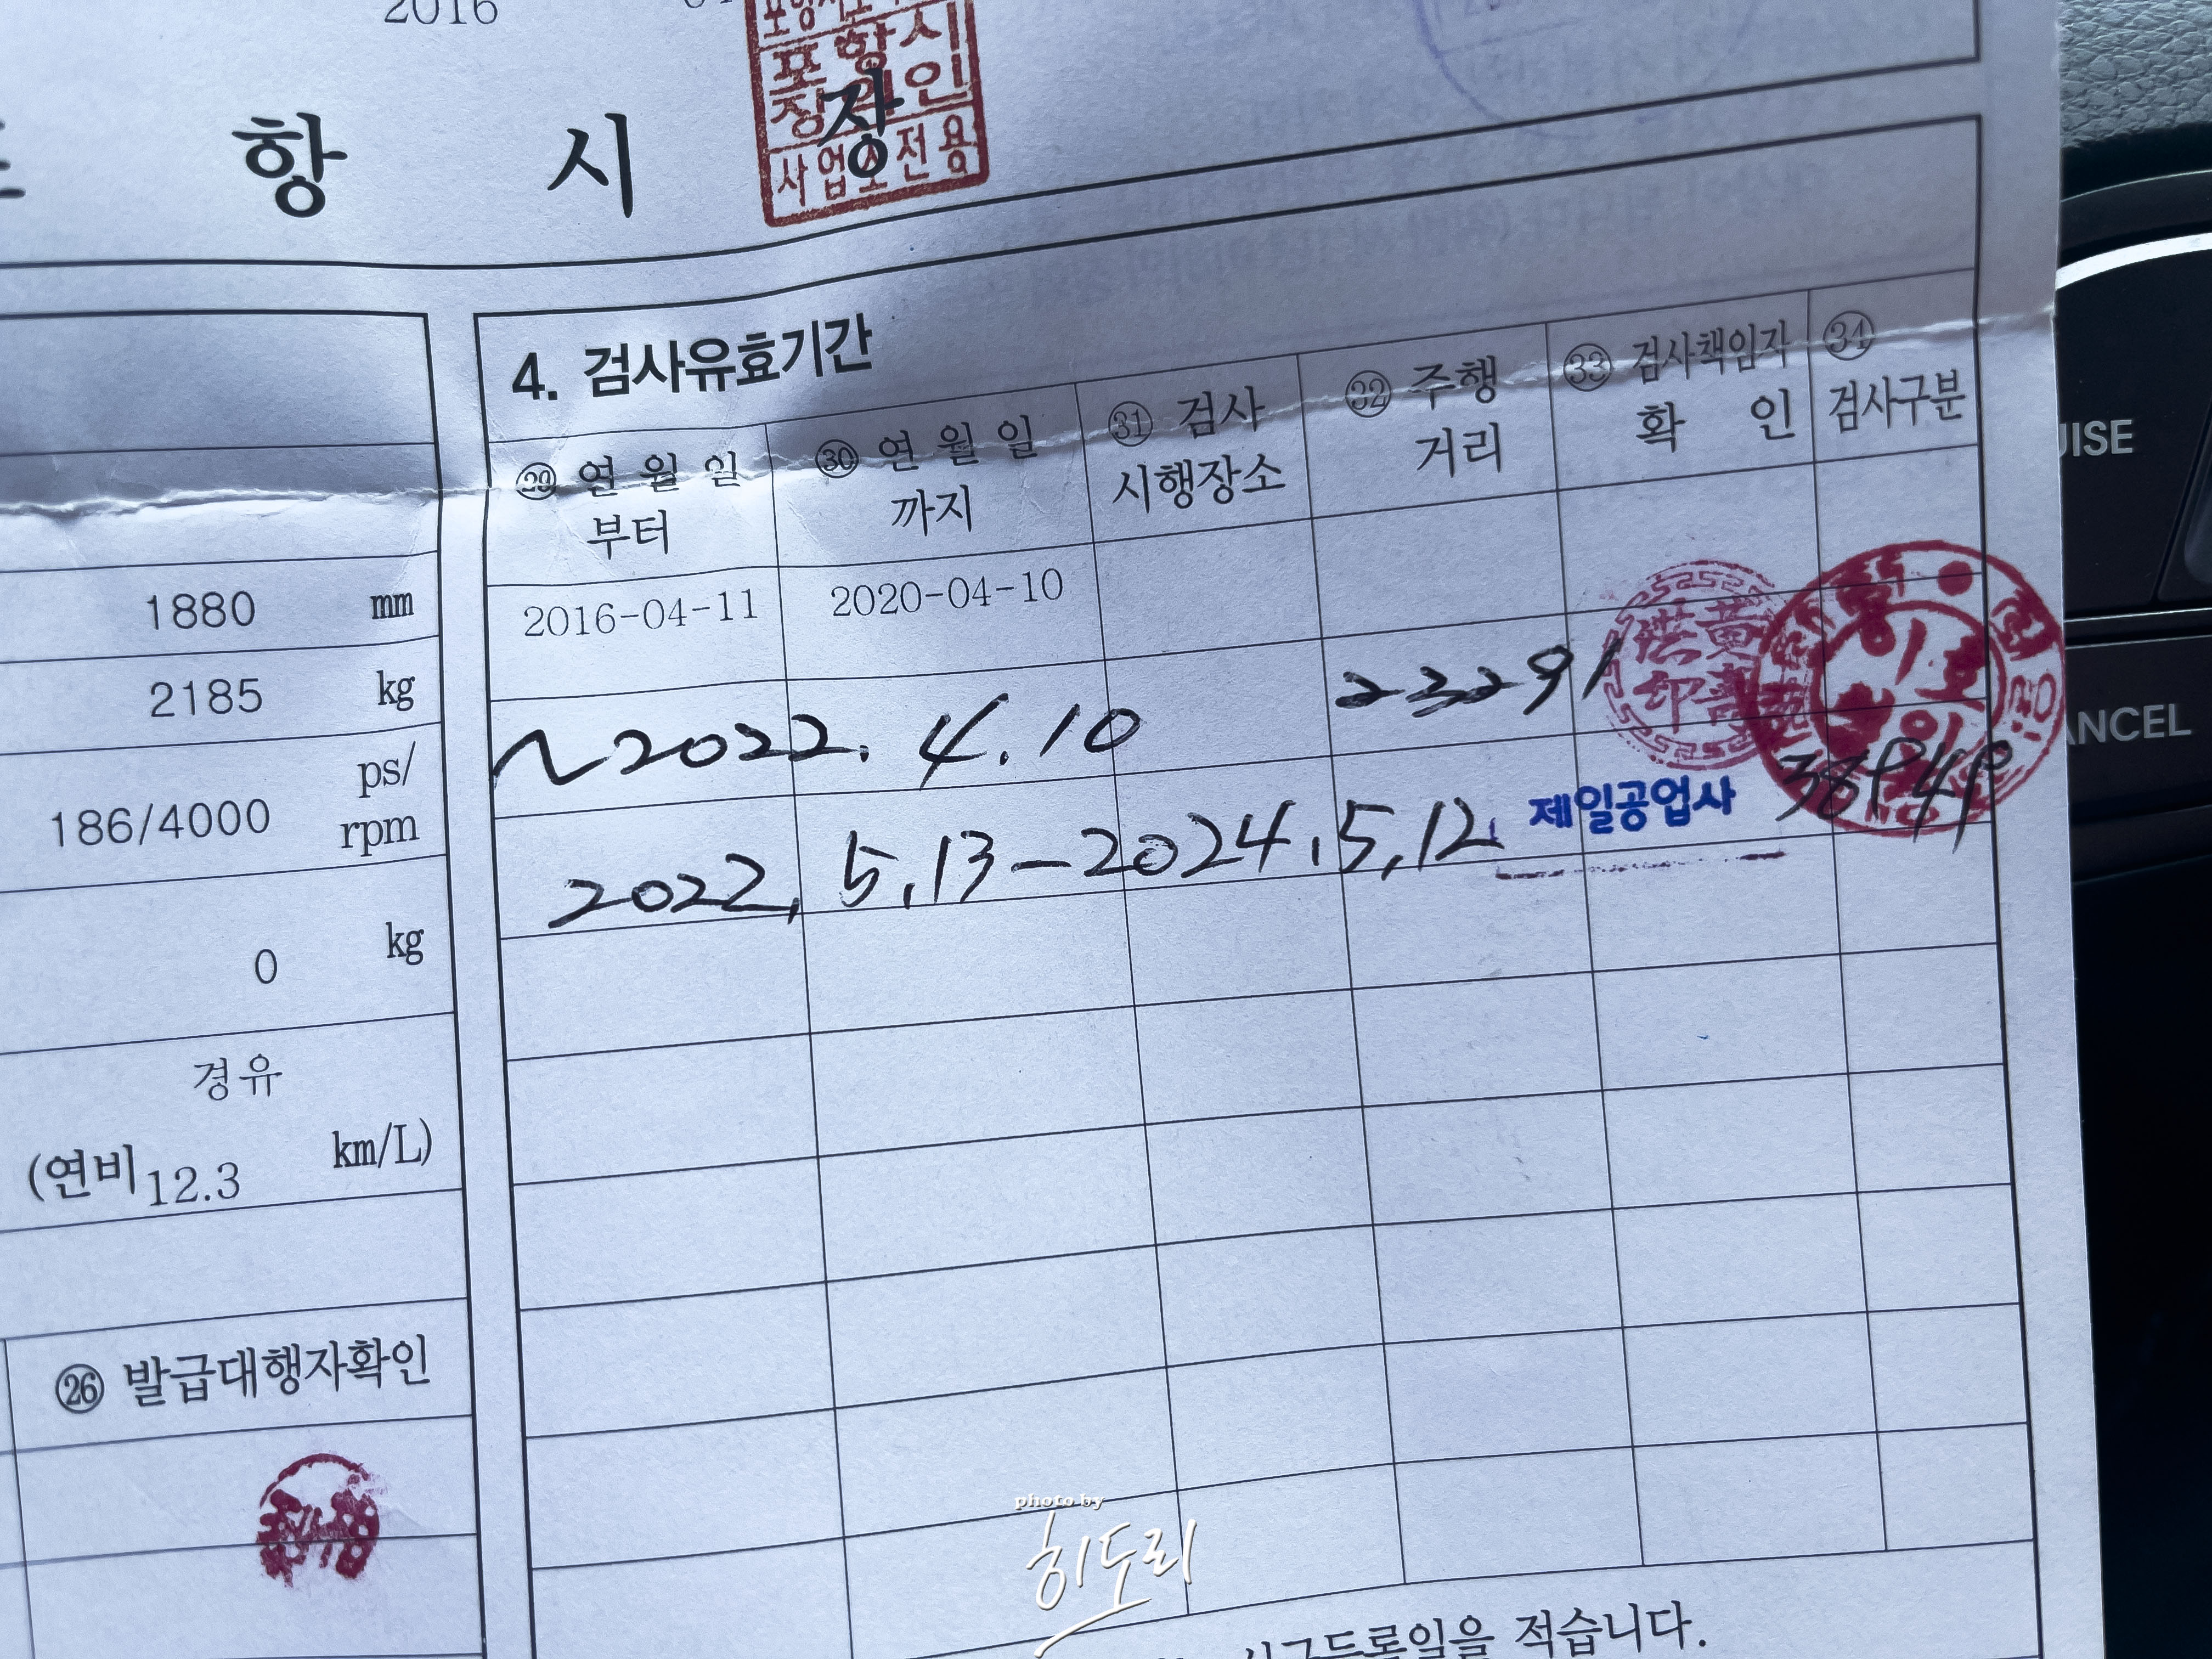 2016
항 시 장
포항시
장의인
사업소전용
4. 검사유효기간
㉙ 연 월 일 부터
㉚ 연 월 일 까지
㉛ 검사 시행장소
㉜ 주행 거리
㉝ 검사책임자 확 인
㉞ 검사구분
2016-04-11 2020-04-10
~2022. 4. 10 23291
2022, 5.13-2024.5.12 제일공업사
1880 mm
2185 kg
186/4000 ps/rpm
0 kg
경유
(연비 12.3 km/L)
㉖ 발급대행자확인
적습니다.
photo by
히도리
CANCEL